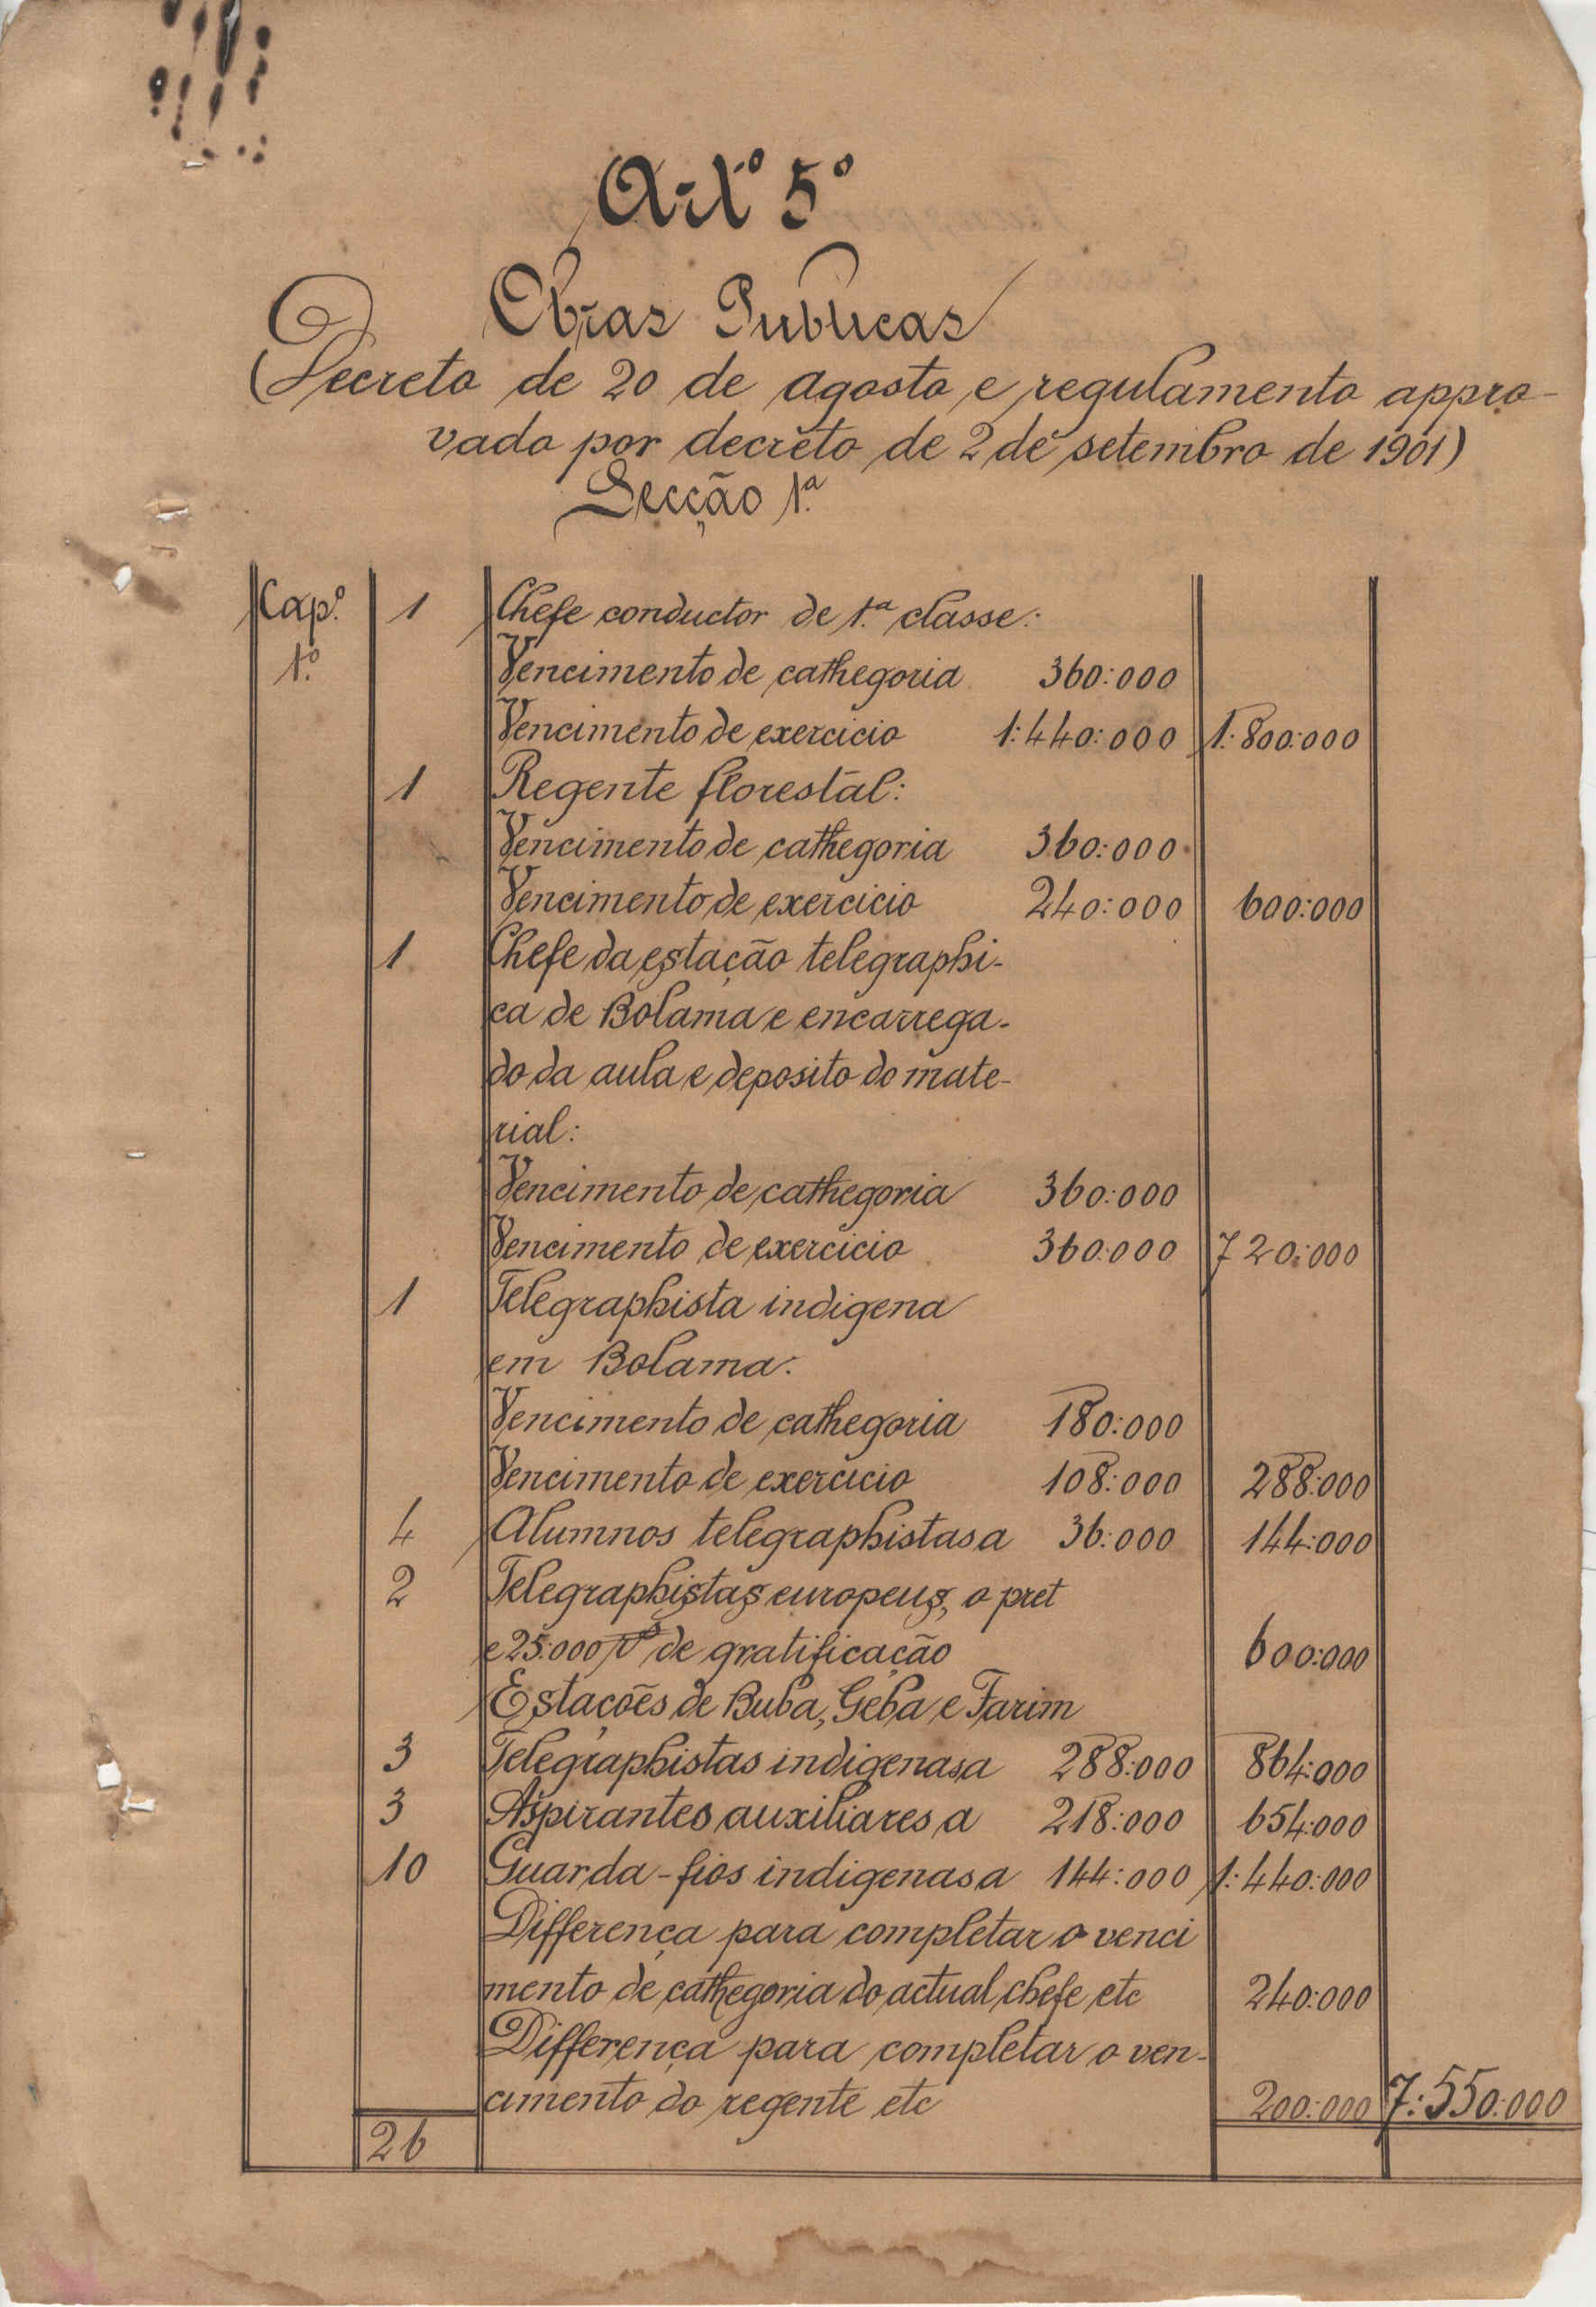 Artº 5º
Obras Publicas
(Decreto de 20 de agosto e regulamento appro-
vado por decreto de 2 de setembro de 1901)
Secção 1ª
Cap.º 1 Chefe conductor de 1.ª classe:
1.º Vencimento de cathegoria 360:000
Vencimento de exercicio 1:440:000 1:800:000
1 Regente florestal:
Vencimento de cathegoria 360:000
Vencimento de exercicio 240:000 600:000
1 Chefe da estação telegraphi-
ca de Bolama e encarrega-
do da aula e deposito do mate-
rial:
Vencimento de cathegoria 360:000
Vencimento de exercicio 360:000 720:000
1 Telegraphista indigena
em Bolama:
Vencimento de cathegoria 180:000
Vencimento de exercicio 108:000 288:000
4 Alumnos telegraphistas a 36:000 144:000
2 Telegraphistas europeus, o pret
e 25:000 rs de gratificação 600:000
Estações de Buba, Géba e Farim
3 Telegraphistas indigenas a 288:000 864:000
3 Aspirantes auxiliares a 218:000 654:000
10 Guarda-fios indigenas a 144:000 1:440:000
Differença para completar o venci
mento de cathegoria do actual chefe etc 240:000
Differença para completar o ven-
cimento do regente etc 200:000 7:550:000
26